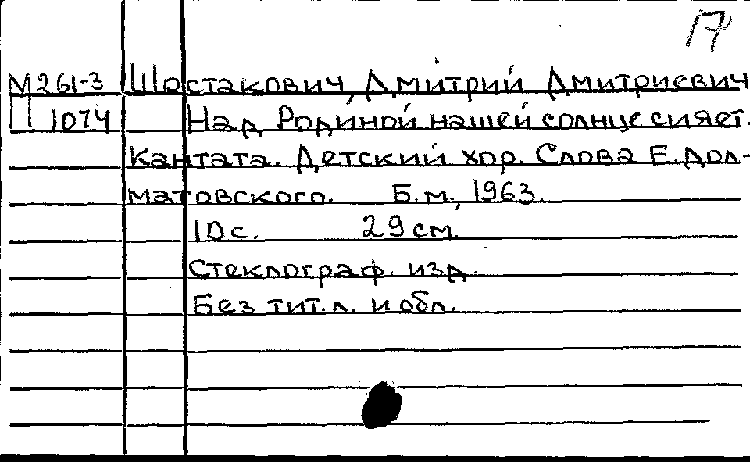 17
М261-3 Шостакович, Дмитрий Дмитриевич
П 1074 Над Родиной нашей солнце сияет.
Кантата. Детский хор. Слова Е. Дол-
матовского. Б.м., 1963.
10с. 29см.
Стеклограф. изд.
Без тит.л. и обл.